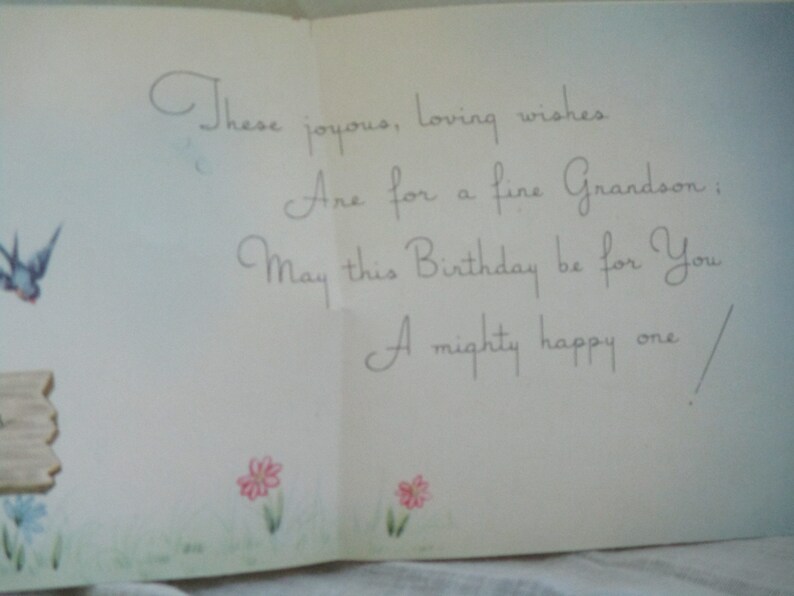 These joyous, loving wishes
Are for a fine Grandson;
May this Birthday be for You
A mighty happy one!